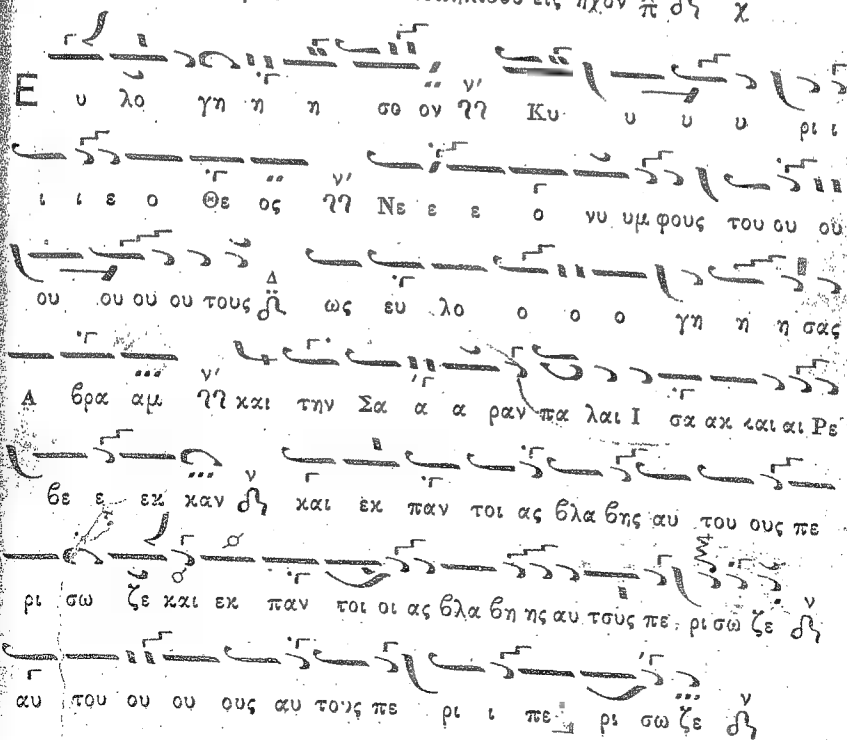 εις ηχον π̈ χ
Ε υ λο γη η η σο ον ν' Κυ υ υ υ ρι ι
ι ι ε ο Θε ος ν' Νε ε ε ο νυ υμ φους του ου ου
ου ου ου ου τους Δ ως ευ λο ο ο ο γη η η σας
Α βρα αμ ν' και την Σα α α ραν πα λαι Ι σα ακ και αι Ρε
βε ε εκ καν ν και εκ παν τοι ας βλα βης αυ του ους πε
ρι σω ζε και εκ παν τοι οι ας βλα βη ης αυ τους πε ρι σω ζε ν
αυ του ου ου ους αυ τους πε ρι ι πε ρι σω ζε ν